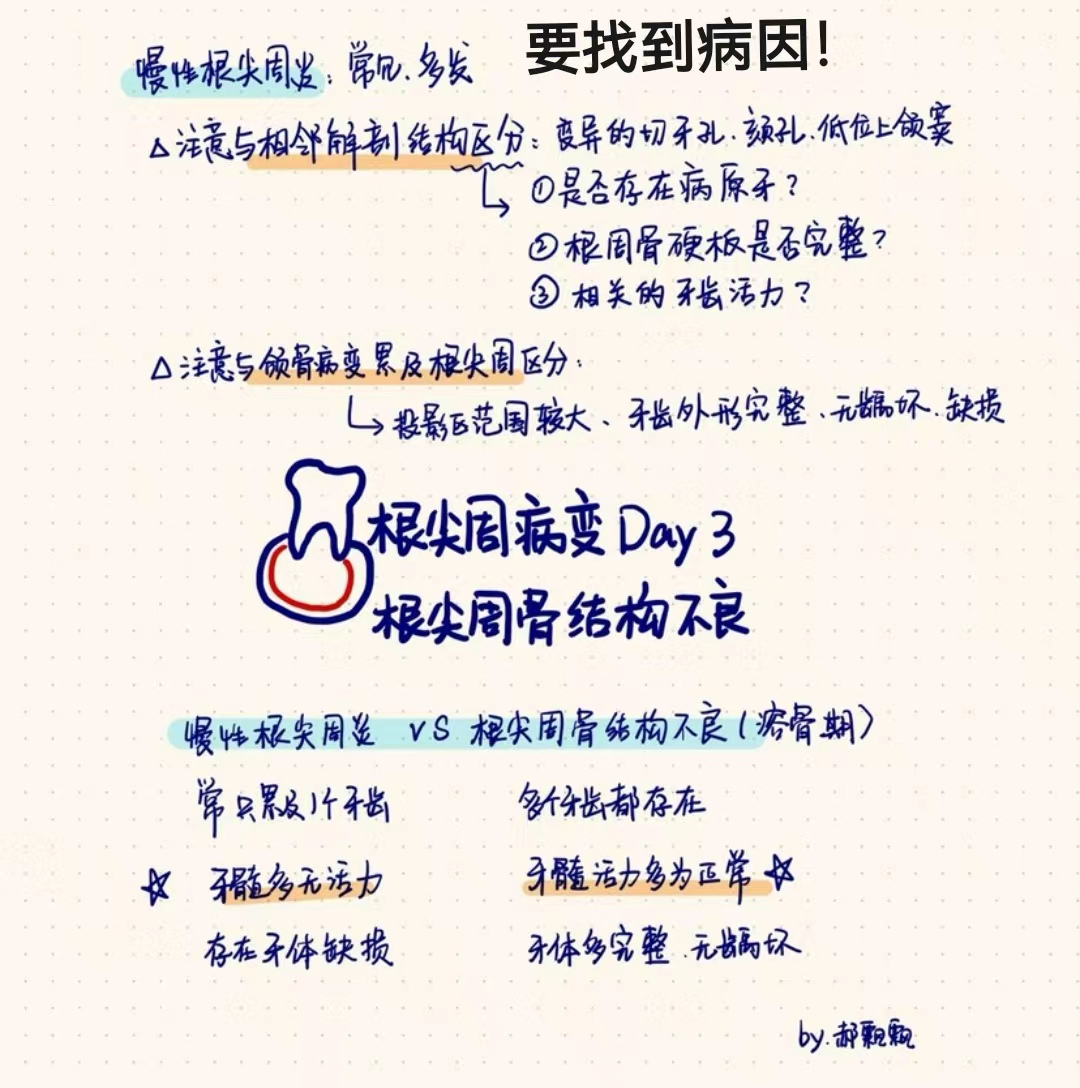 要找到病因!
慢性根尖周炎:常见、多发
△注意与相邻解剖结构区分:变异的切牙孔、颏孔、低位上颌窦
①是否存在病原牙?
②根周骨硬板是否完整?
③相关的牙齿活力?
△注意与颌骨病变累及根尖周区分:
投影区范围较大、牙齿外形完整、无龋坏、缺损
根尖周病变Day 3
根尖周骨结构不良
慢性根尖周炎 VS 根尖周骨结构不良(溶骨期)
常只累及1个牙齿 多个牙齿都存在
☆ 牙髓多无活力 牙髓活力多为正常☆
存在牙体缺损 牙体多完整、无龋坏
by.郝颗颗